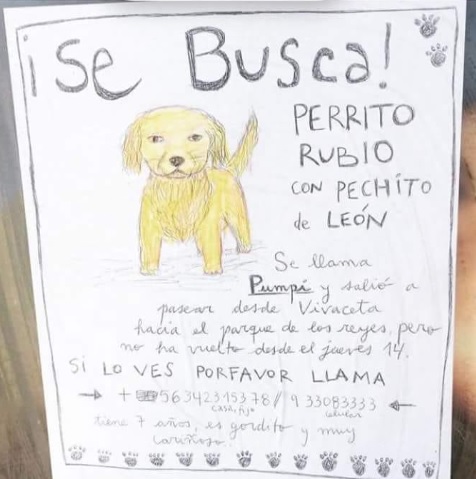 ¡Se Busca!
PERRITO
RUBIO
CON PECHITO
de LEÓN
Se llama
Pumpi y salió a
pasear desde Vivaceta
hacia el parque de los reyes, pero
no ha vuelto desde el jueves 14.
SI LO VES PORFAVOR LLAMA
→ + 56342315378 // 9 33083333 ←
CASA, fijo celular
tiene 7 años, es gordito y muy
cariñoso